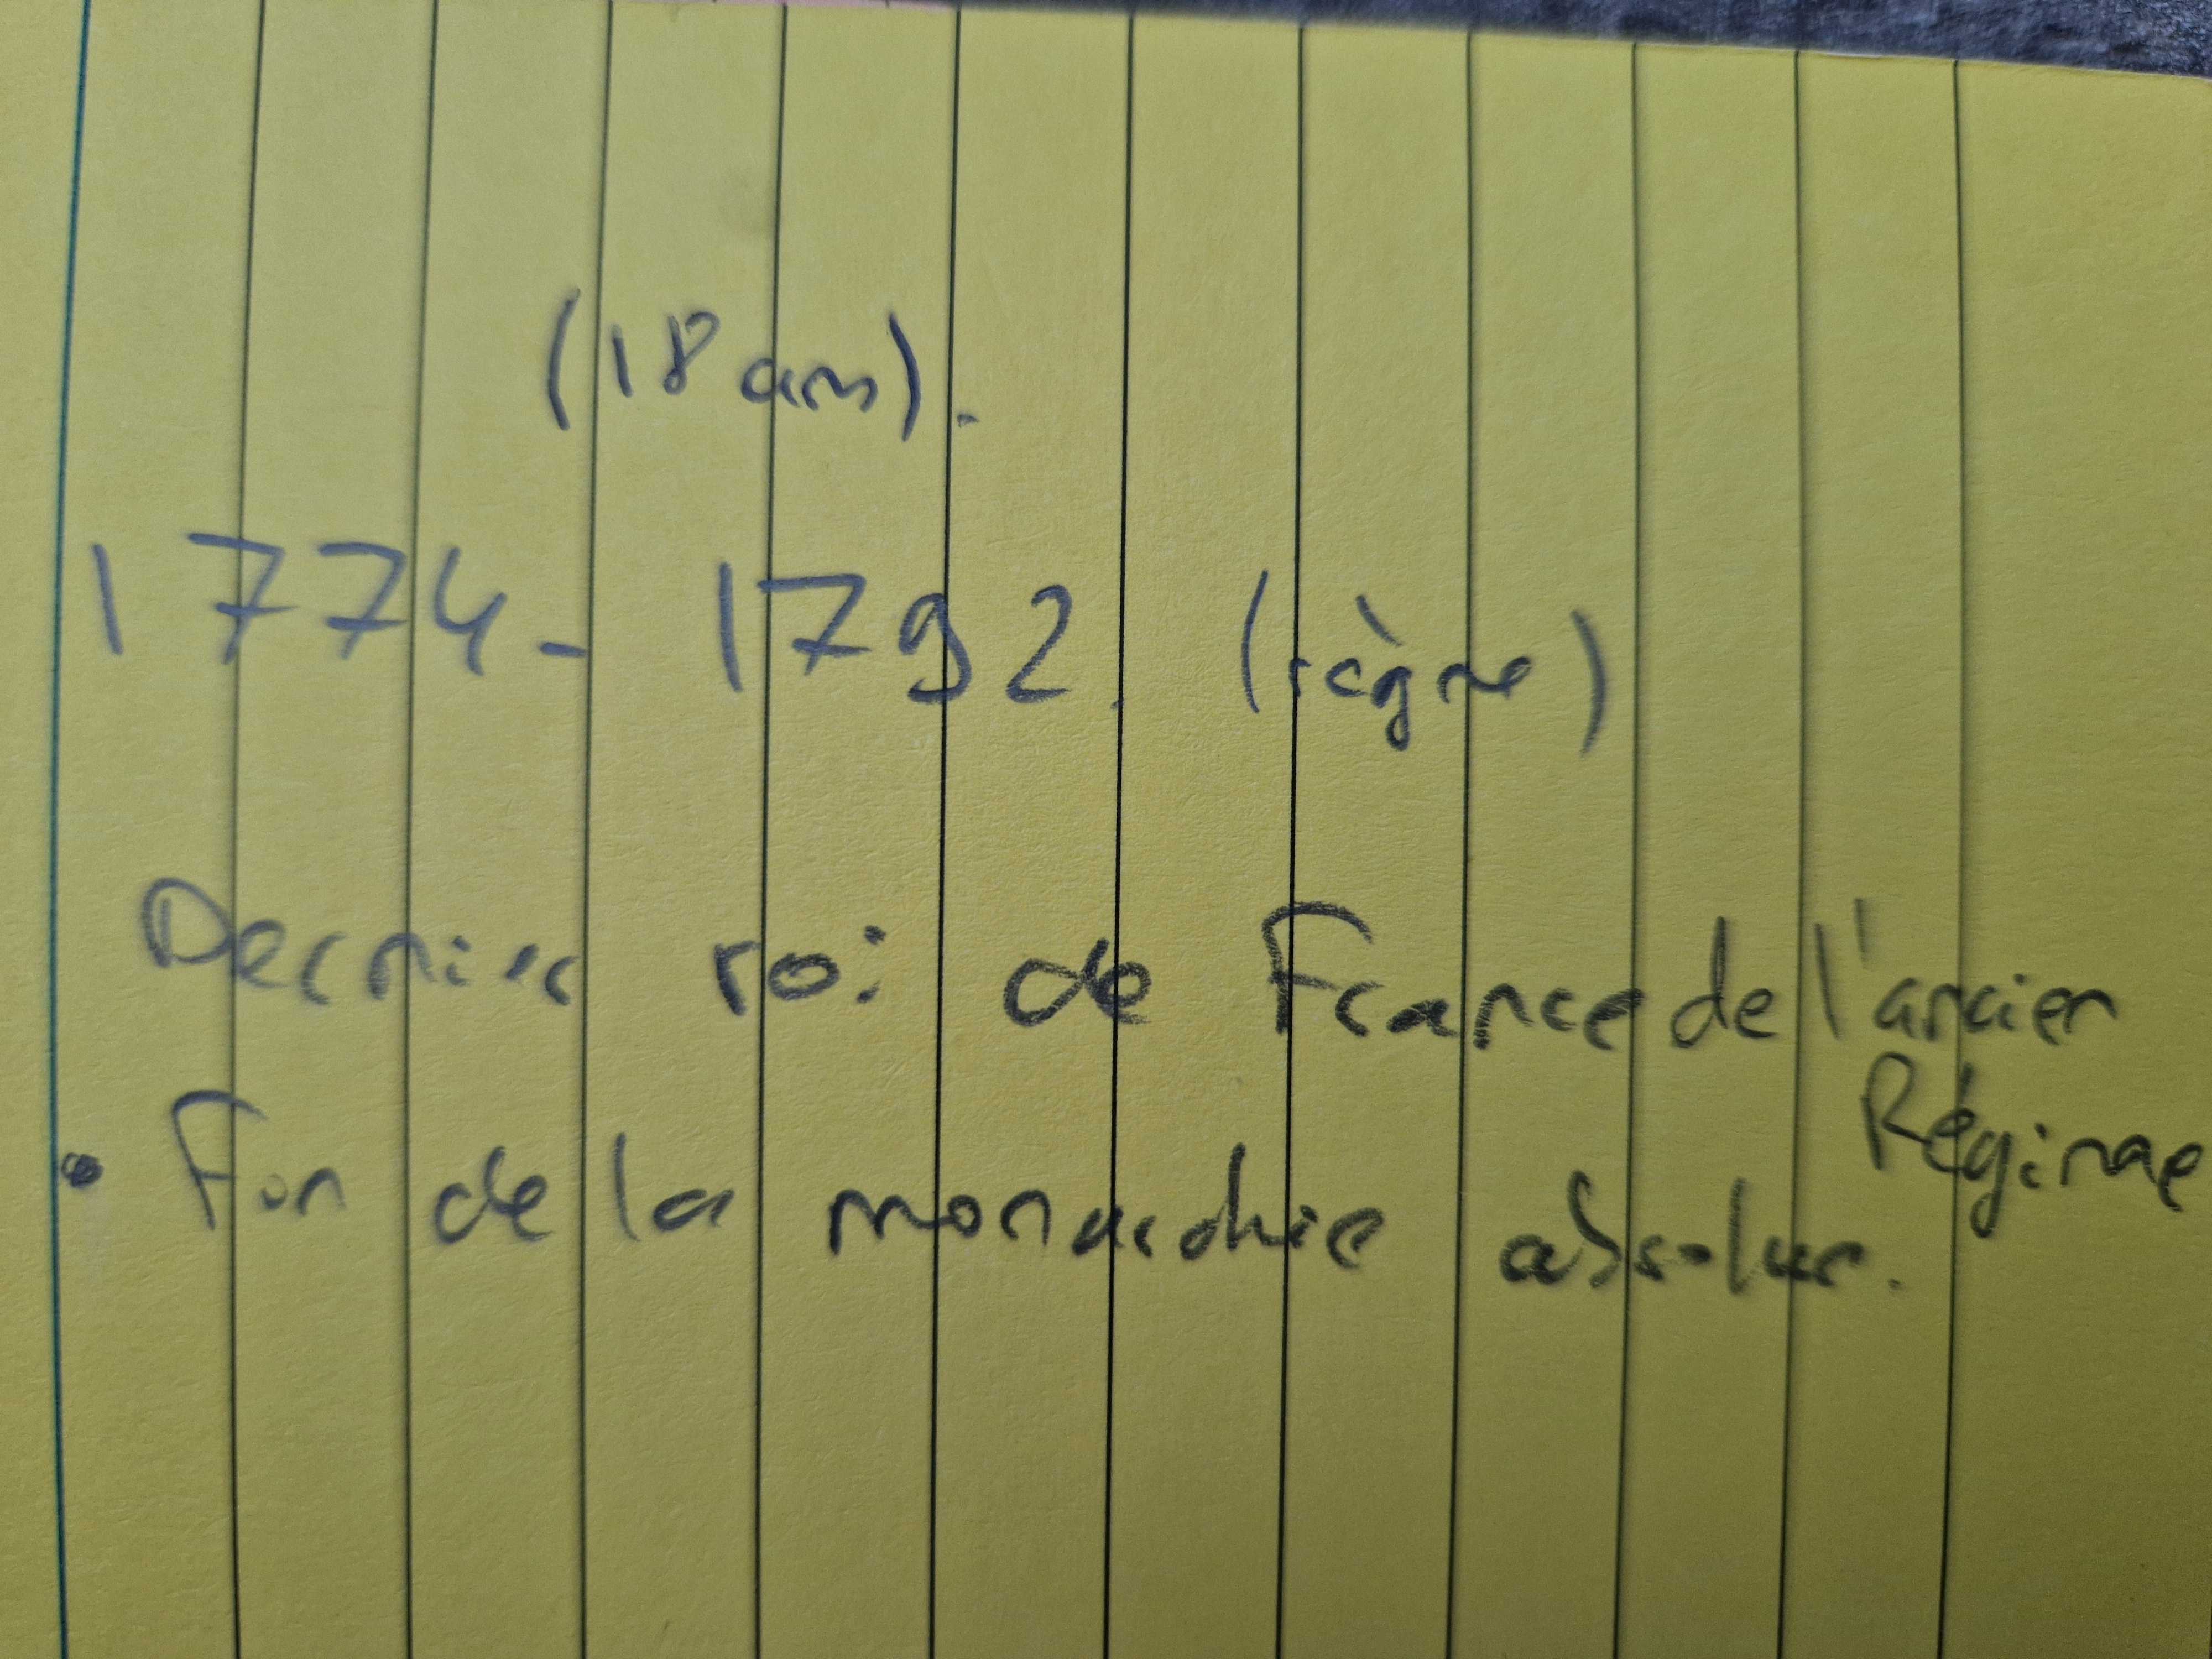 (18 ans).
1774 - 1792. (règne)
Dernier roi de France de l'ancien
Régime
• Fin de la monarchie absolue.